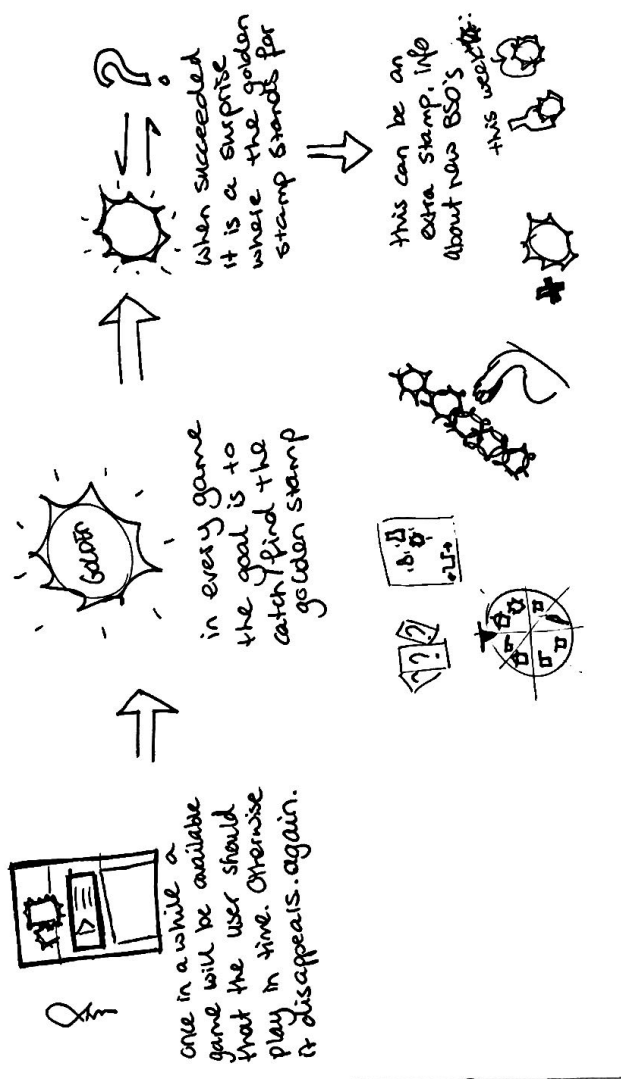 once in a while a
game will be available
that the user should
play in time. Otherwise
it disappears. again.
GOLDEN
in every game
the goal is to
catch/find the
golden stamp
?
when succeeded
it is a surprise
where the golden
stamp stands for
this can be an
extra stamp, info
about new BSO's
this week:
? ? ?